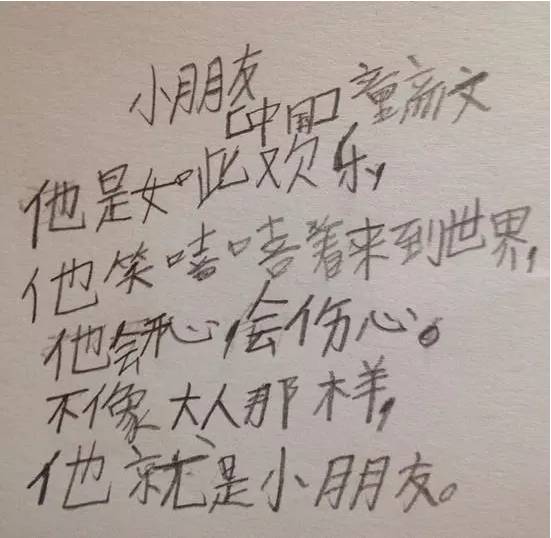 小朋友
[中国]童新文
他是如此欢乐,
他笑嘻嘻着来到世界,
他会开心,会伤心。
不像大人那样,
他就是小朋友。